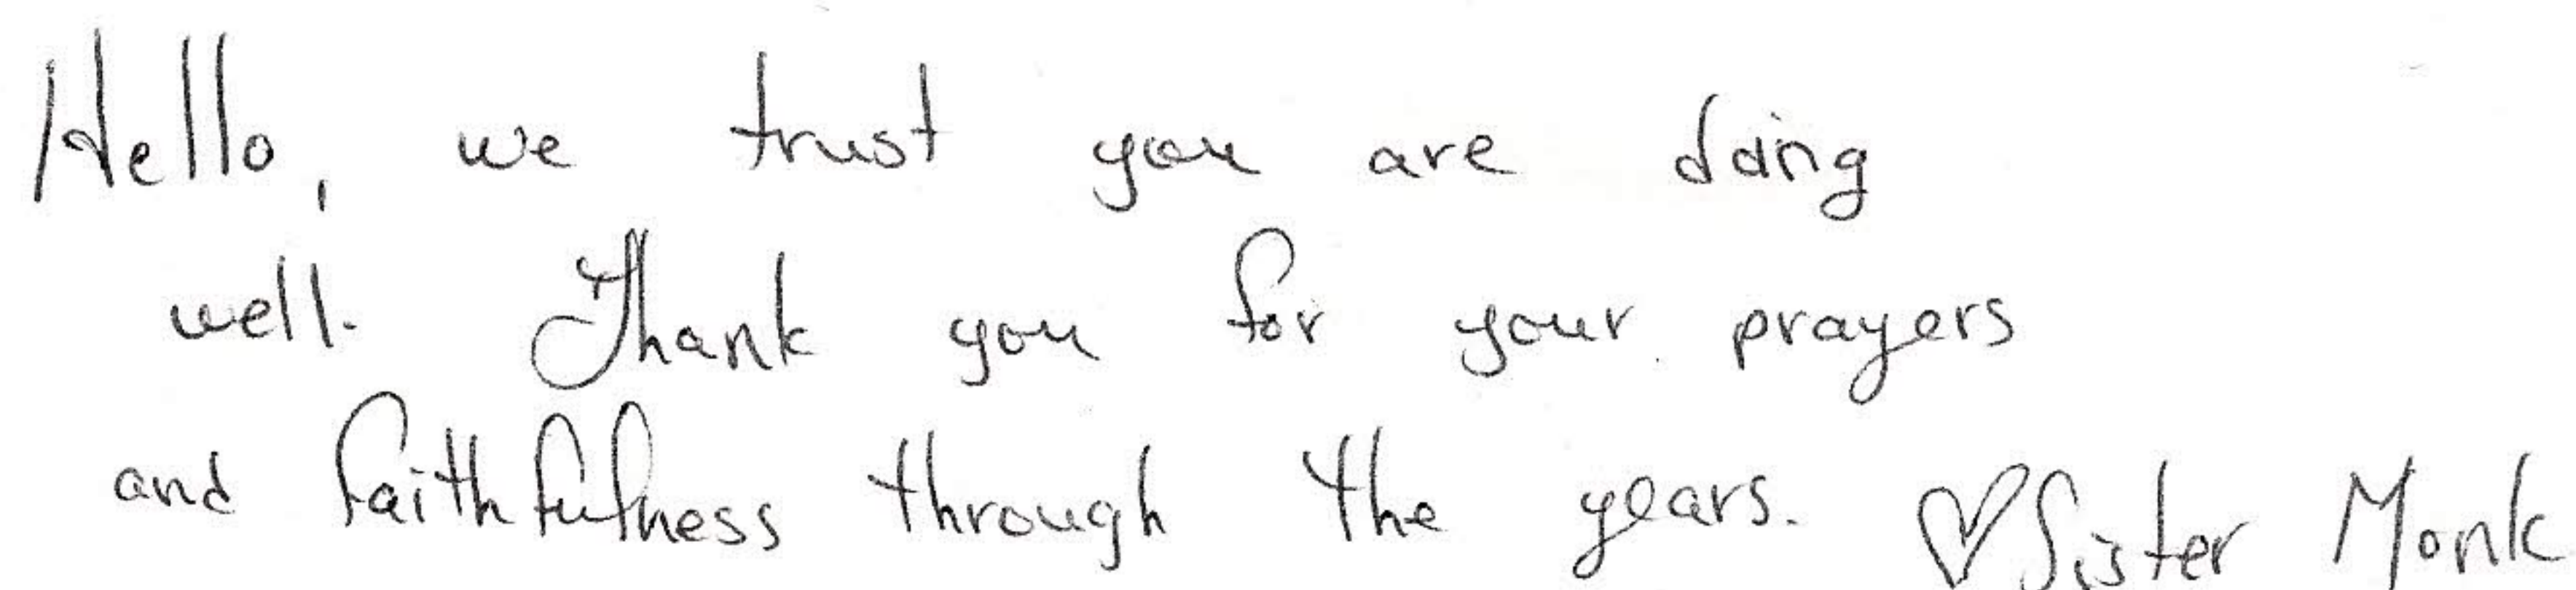 Hello, we trust you are doing
well. Thank you for your prayers
and faithfulness through the years. ♡ Sister Monk